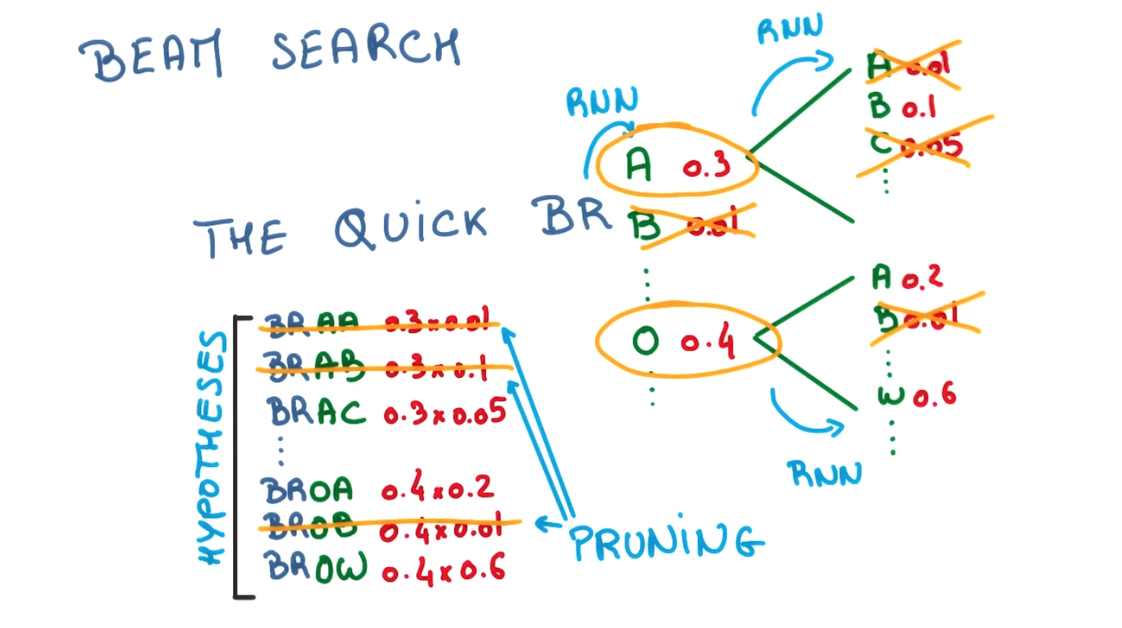 BEAM SEARCH
THE QUICK BR
RNN
A 0.3
B 0.01
O 0.4
RNN
A 0.01
B 0.1
C 0.05
A 0.2
B 0.01
W 0.6
RNN
HYPOTHESES
BRAA 0.3x0.01
BRAB 0.3x0.1
BRAC 0.3x0.05
BROA 0.4x0.2
BROB 0.4x0.01
BROW 0.4x0.6
PRUNING